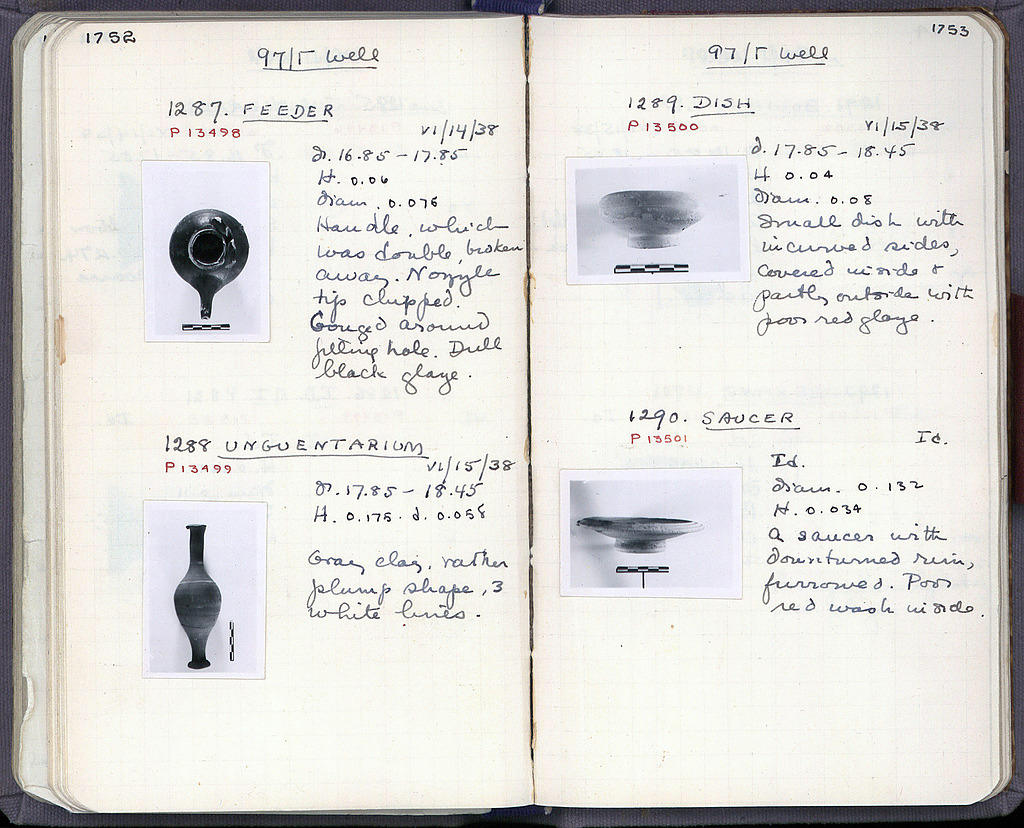 1752
97/Γ Well
1287. FEEDER
P 13498
VI/14/38
d. 16.85 – 17.85
H. 0.06
diam. 0.076
Handle, which
was double, broken
away. Nozzle
tip chipped.
Gouged around
filling hole. Dull
black glaze.
1288 UNGUENTARIUM
P 13499
VI/15/38
d. 17.85 – 18.45
H. 0.175. d. 0.058
Gray clay, rather
plump shape, 3
white lines.
1753
97/Γ Well
1289. DISH
P 13500
VI/15/38
d. 17.85 – 18.45
H. 0.04
diam. 0.08
Small dish with
incurved sides,
covered inside &
partly outside with
poor red glaze.
1290. SAUCER
P 13501
Id.
Id.
diam. 0.132
H. 0.034
A saucer with
downturned rim,
furrowed. Poor
red wash inside.